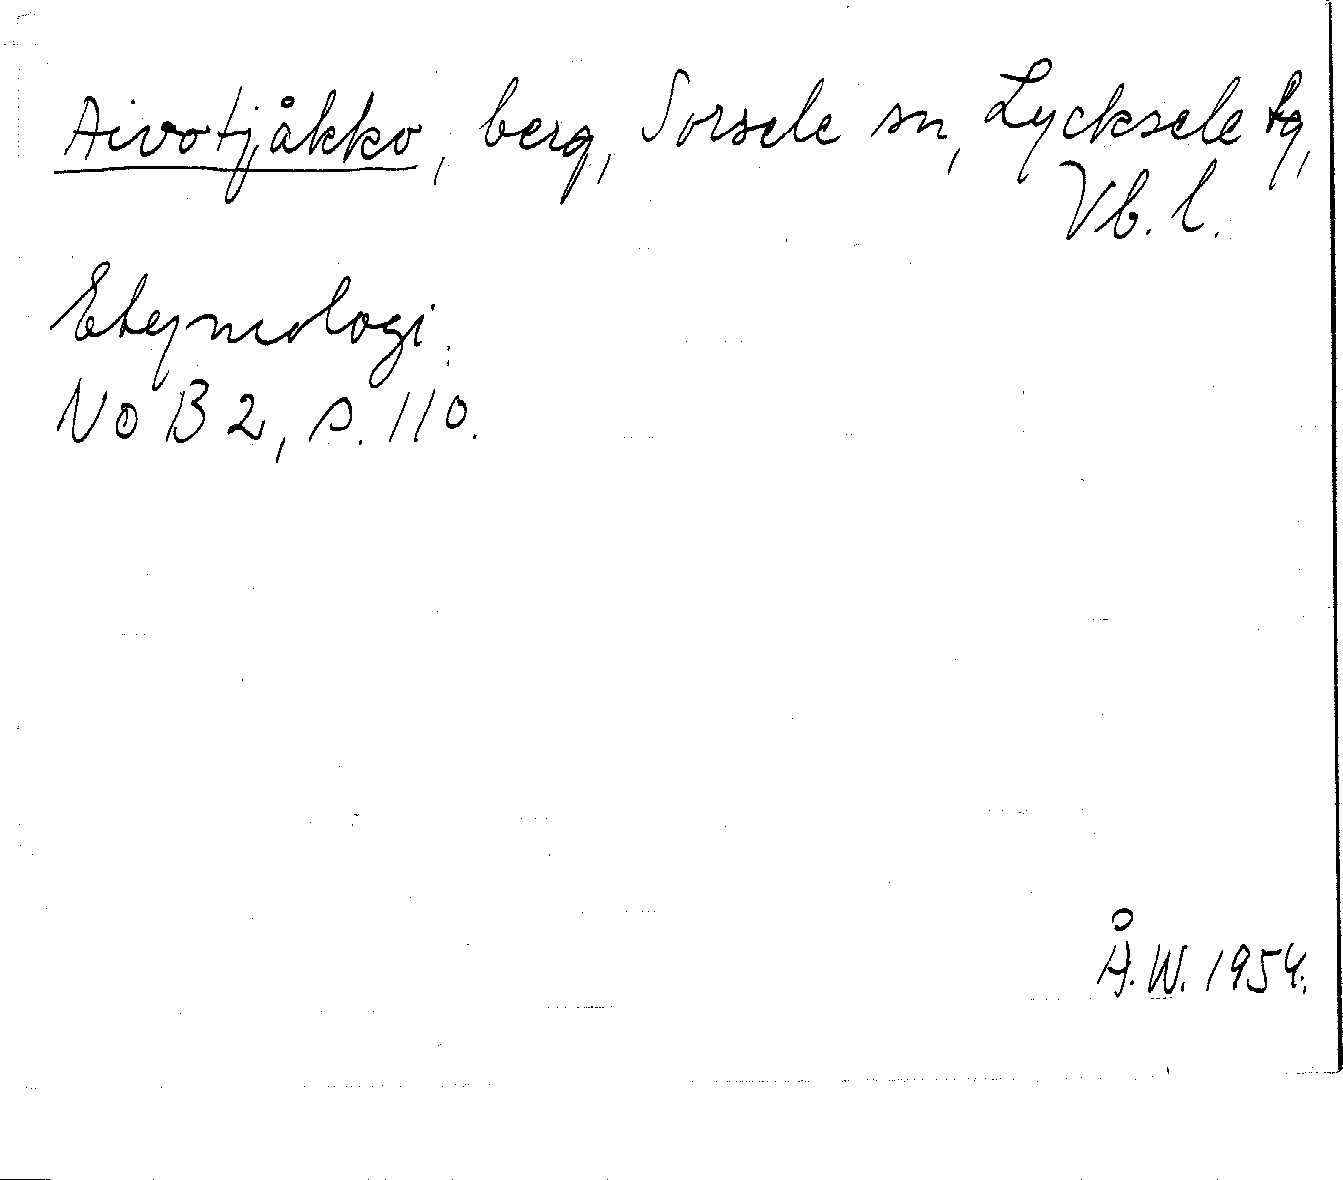 Aivotjåkko, berg, Sorsele sn, Lycksele tg,
Vb. l.
Etymologi.
NoB 2, s. 110.
Å.W. 1954.